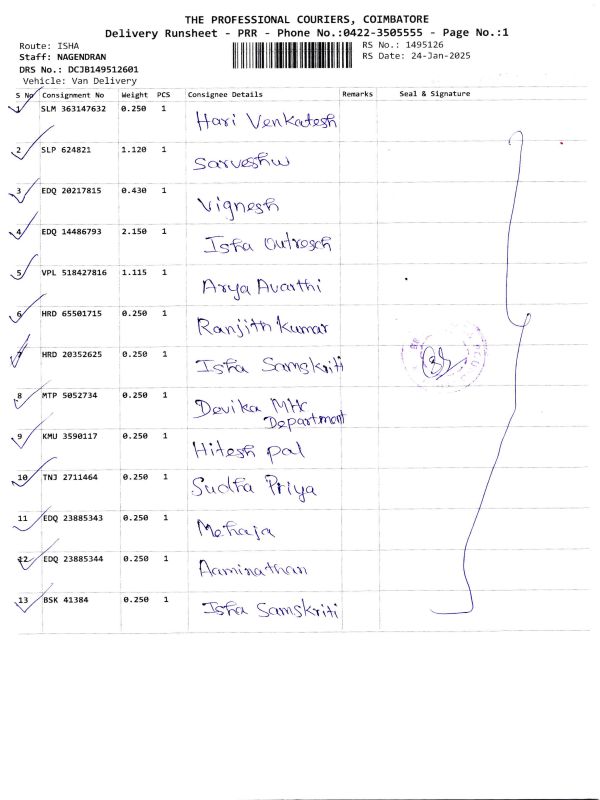 THE PROFESSIONAL COURIERS, COIMBATORE
Delivery Runsheet - PRR - Phone No.:0422-3505555 - Page No.:1
Route: ISHA
RS No.: 1495126
Staff: NAGENDRAN
RS Date: 24-Jan-2025
DRS No.: DCJB149512601
Vehicle: Van Delivery
S No Consignment No Weight PCS Consignee Details Remarks Seal & Signature
1 SLM 363147632 0.250 1
Hari Venkatesh
2 SLP 624821 1.120 1
Sarveshw
3 EDQ 20217815 0.430 1
Vignesh
4 EDQ 14486793 2.150 1
Isha Outreach
5 VPL 518427816 1.115 1
Arya Avarthi
6 HRD 65501715 0.250 1
Ranjith Kumar
7 HRD 20352625 0.250 1
Isha Samskriti
8 MTP 5052734 0.250 1
Devika MHC
Department
9 KMU 3590117 0.250 1
Hitesh pal
10 TNJ 2711464 0.250 1
Sudha Priya
11 EDQ 23885343 0.250 1
Mehaja
12 EDQ 23885344 0.250 1
Aaminathan
13 BSK 41384 0.250 1
Isha Samskriti